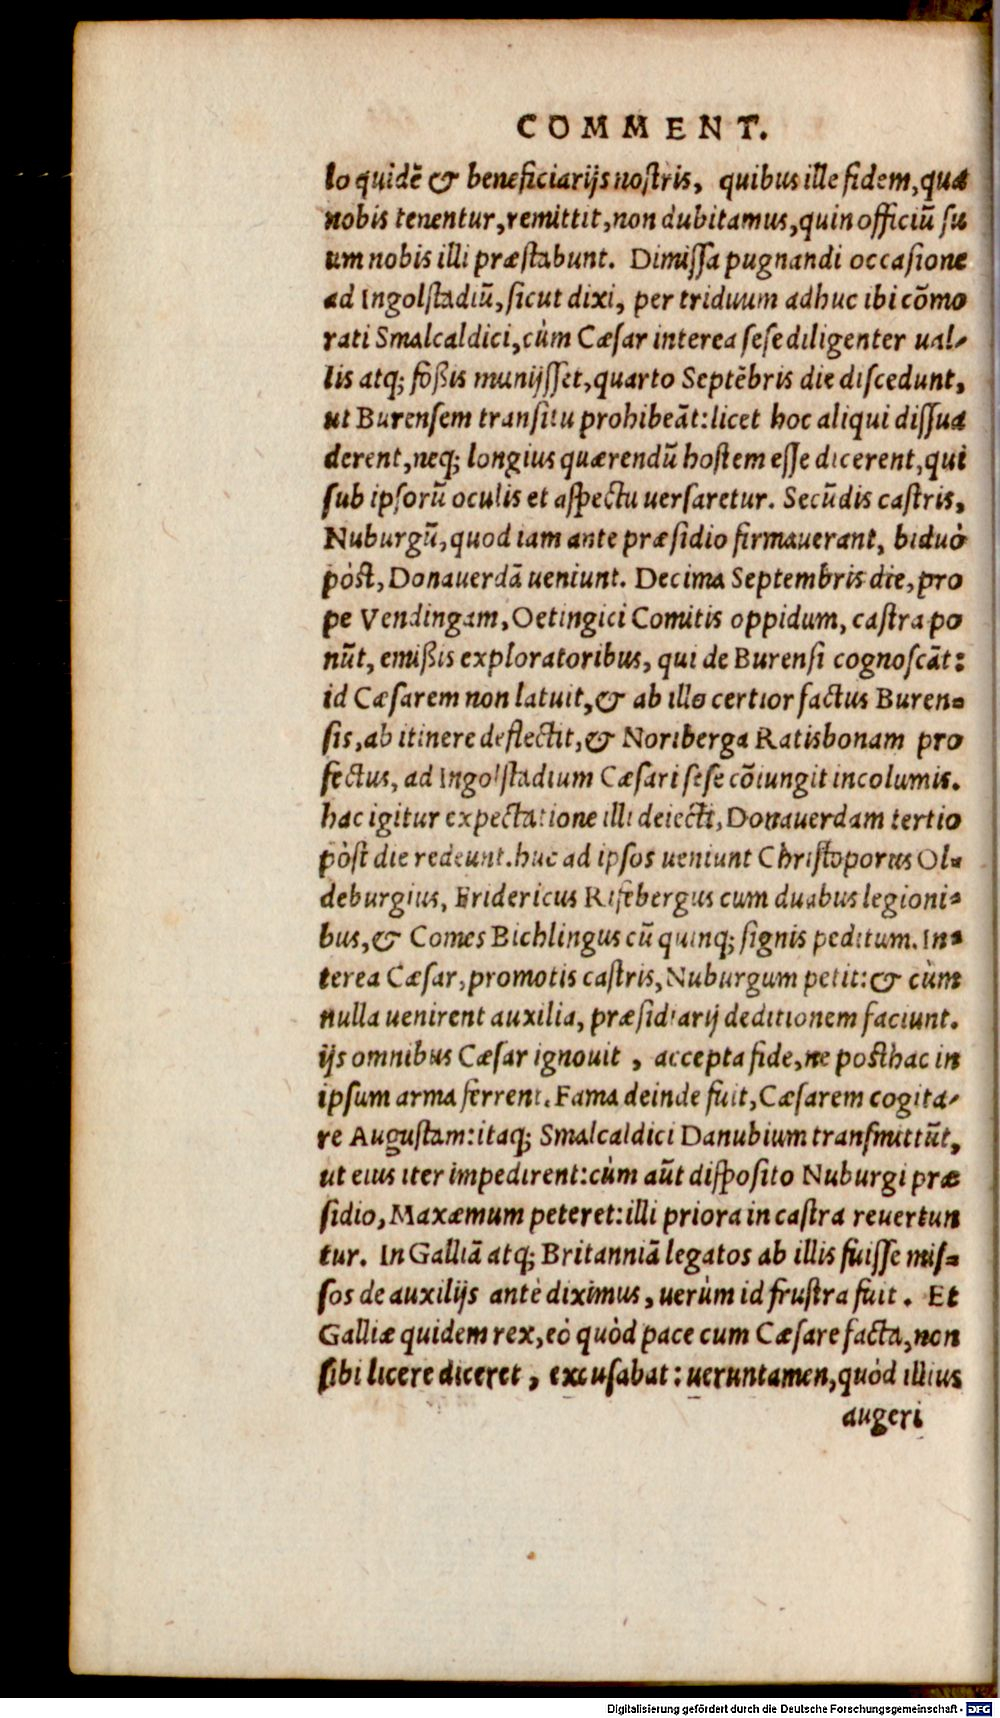 COMMENT.
lo quidē & beneficiarijs nostris, quibus ille fidem, qua
nobis tenentur, remittit, non dubitamus, quin officiū su
um nobis illi præstabunt. Dimissa pugnandi occasione
ad Ingolstadiū, sicut dixi, per triduum adhuc ibi cōmo
rati Smalcaldici, cùm Cæsar interea sese diligenter ual-
lis atq; foßis munijsset, quarto Septēbris die discedunt,
ut Burensem transitu prohibeāt: licet hoc aliqui dissua
derent, neq; longius quærendū hostem esse dicerent, qui
sub ipsorū oculis et aspectu uersaretur. Secūdis castris,
Nuburgū, quod iam ante præsidio firmauerant, biduò
pòst, Donauerdā ueniunt. Decima Septembris die, pro
pe Vendingam, Oetingici Comitis oppidum, castra po
nūt, emißis exploratoribus, qui de Burensi cognoscāt:
id Cæsarem non latuit, & ab illo certior factus Buren-
sis, ab itinere deflectit, & Noriberga Ratisbonam pro
fectus, ad Ingolstadium Cæsari sese cōiungit incolumis.
hac igitur expectatione illi deiecti, Donauerdam tertio
pòst die redeunt. huc ad ipsos ueniunt Christoporus Ol-
deburgius, Fridericus Rifebergus cum duabus legioni-
bus, & Comes Bichlingus cū quinq; signis peditum. In-
terea Cæsar, promotis castris, Nuburgum petit: & cùm
nulla uenirent auxilia, præsidiarij deditionem faciunt.
ijs omnibus Cæsar ignouit, accepta fide, ne posthac in
ipsum arma ferrent. Fama deinde fuit, Cæsarem cogita-
re Augustam: itaq; Smalcaldici Danubium transmittūt,
ut eius iter impedirent: cùm aūt disposito Nuburgi præ
sidio, Maxæmum peteret: illi priora in castra reuertun
tur. In Galliā atq; Britanniā legatos ab illis fuisse mis-
sos de auxilijs antè diximus, uerùm id frustra fuit. Et
Galliæ quidem rex, eò quòd pace cum Cæsare facta, non
sibi licere diceret, excusabat: ueruntamen, quòd illius
augeri
Digitalisierung gefördert durch die Deutsche Forschungsgemeinschaft - DFG